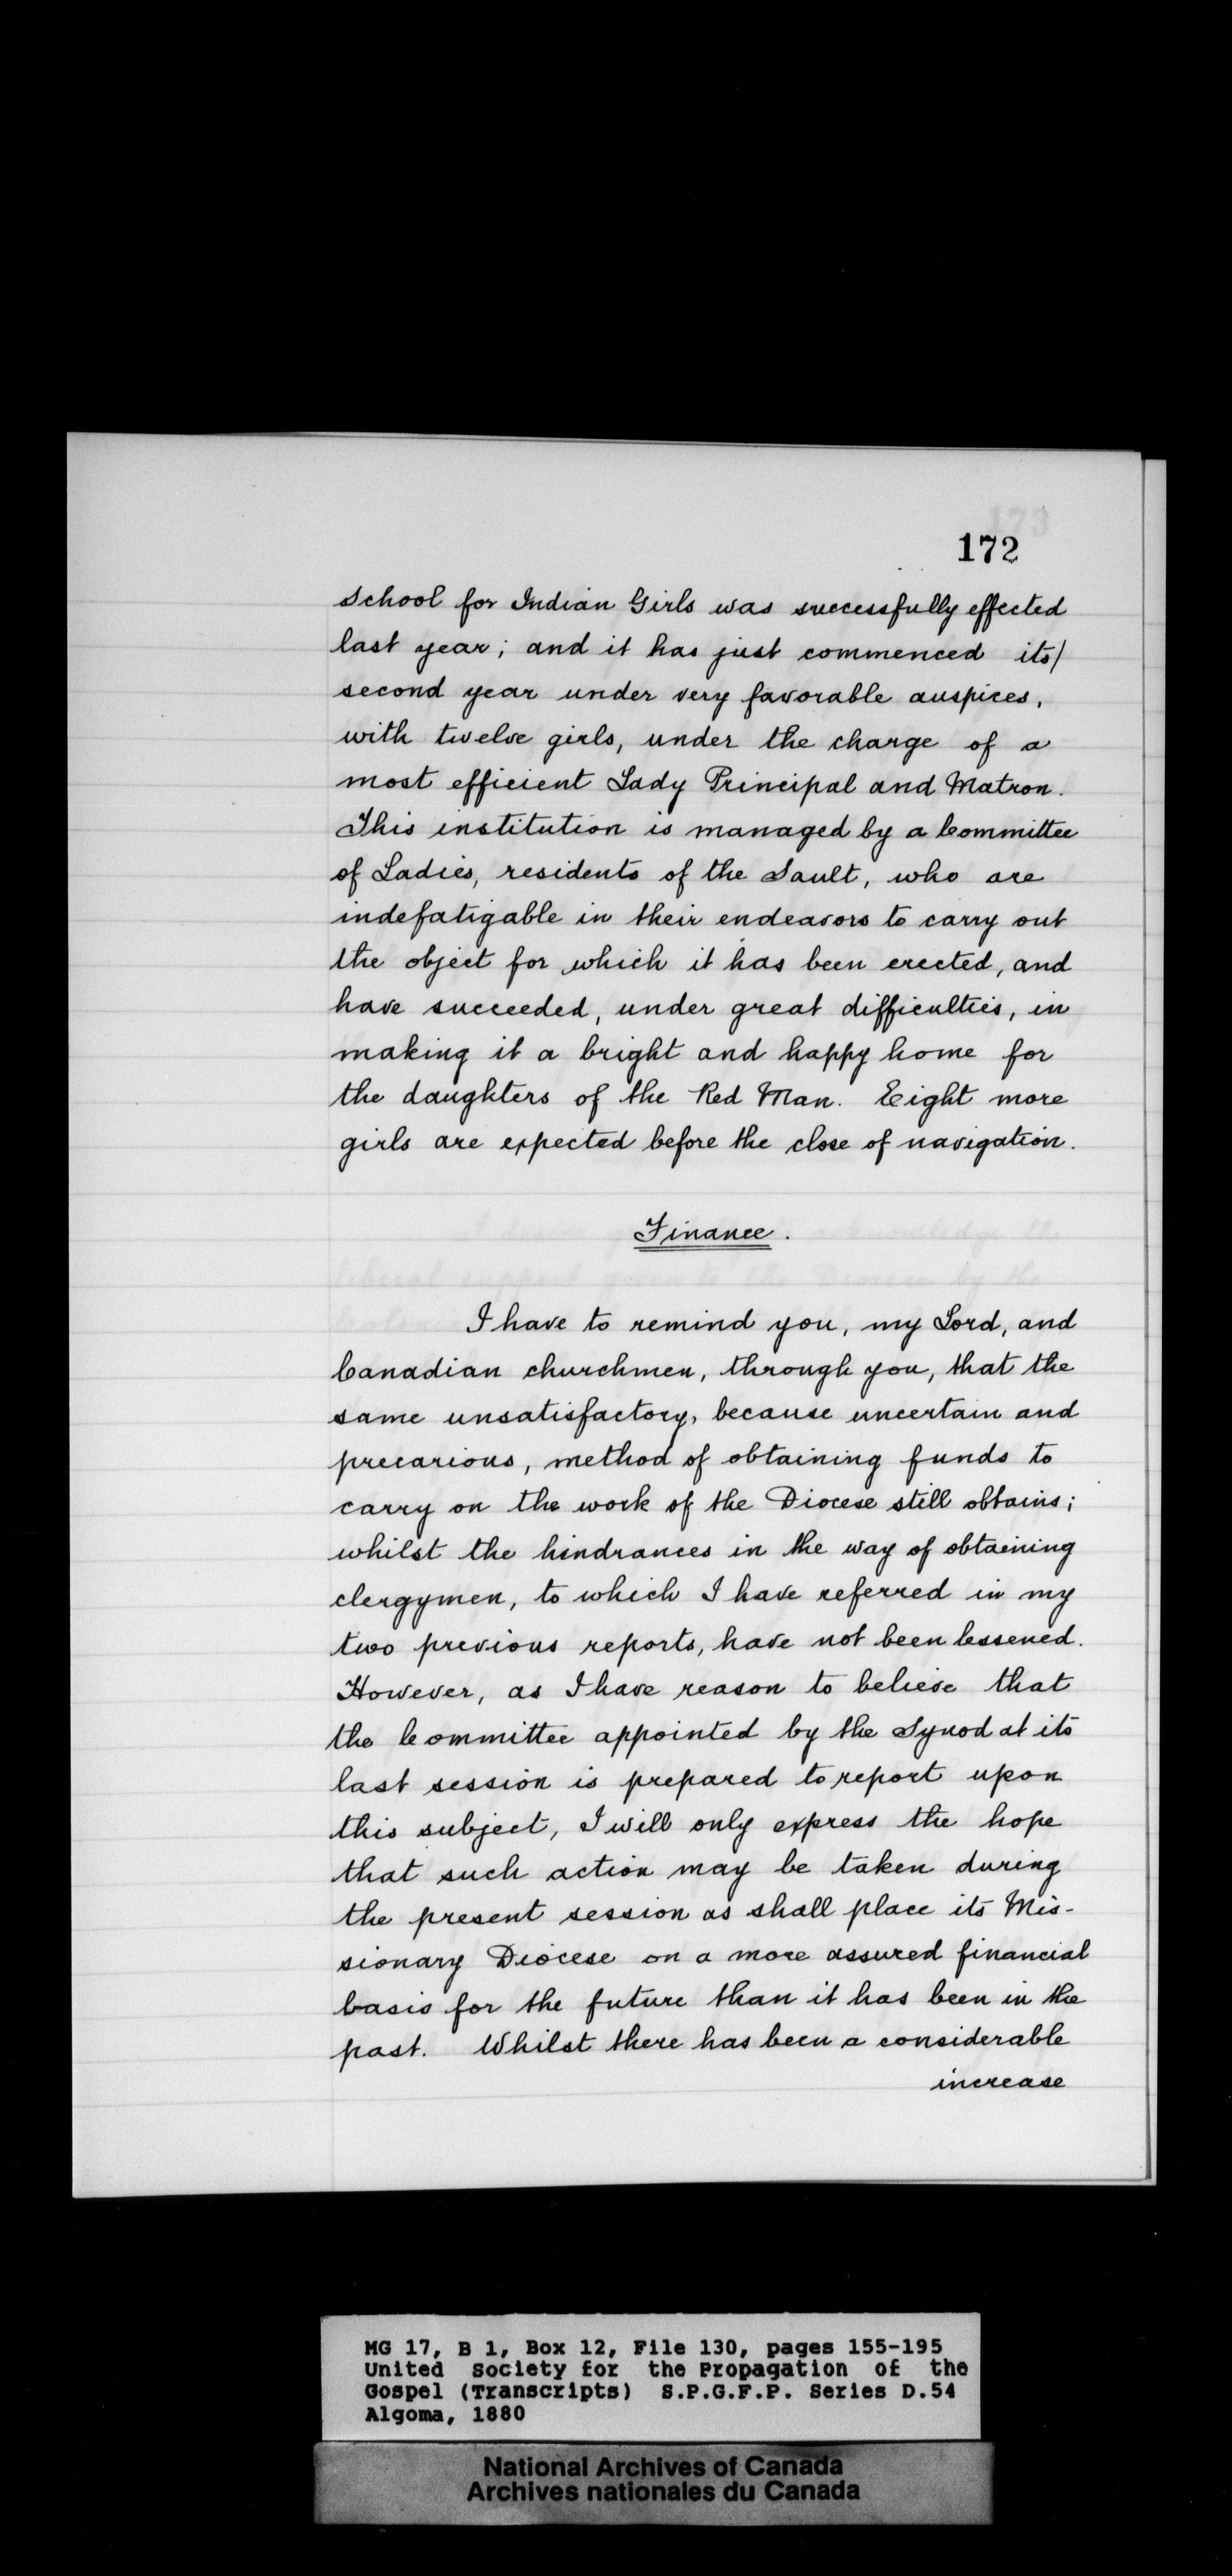 172
school for Indian Girls was successfully effected
last year; and it has just commenced its/
second year under very favorable auspices,
with twelve girls, under the charge of a
most efficient Lady Principal and Matron.
This institution is managed by a Committee
of Ladies, residents of the Sault, who are
indefatigable in their endeavors to carry out
the object for which it has been erected, and
have succeeded, under great difficulties, in
making it a bright and happy home for
the daughters of the Red Man. Eight more
girls are expected before the close of navigation.
Finance.
I have to remind you, my Lord, and
Canadian churchmen, through you, that the
same unsatisfactory, because uncertain and
precarious, method of obtaining funds to
carry on the work of the Diocese still obtains;
whilst the hindrances in the way of obtaining
clergymen, to which I have referred in my
two previous reports, have not been lessened.
However, as I have reason to believe that
the Committee appointed by the Synod at its
last session is prepared to report upon
this subject, I will only express the hope
that such action may be taken during
the present session as shall place its Mis-
sionary Diocese on a more assured financial
basis for the future than it has been in the
past. Whilst there has been a considerable
increase
MG 17, B 1, Box 12, File 130, pages 155-195
United Society for the Propagation of the
Gospel (Transcripts) S.P.G.F.P. Series D.54
Algoma, 1880
National Archives of Canada
Archives nationales du Canada